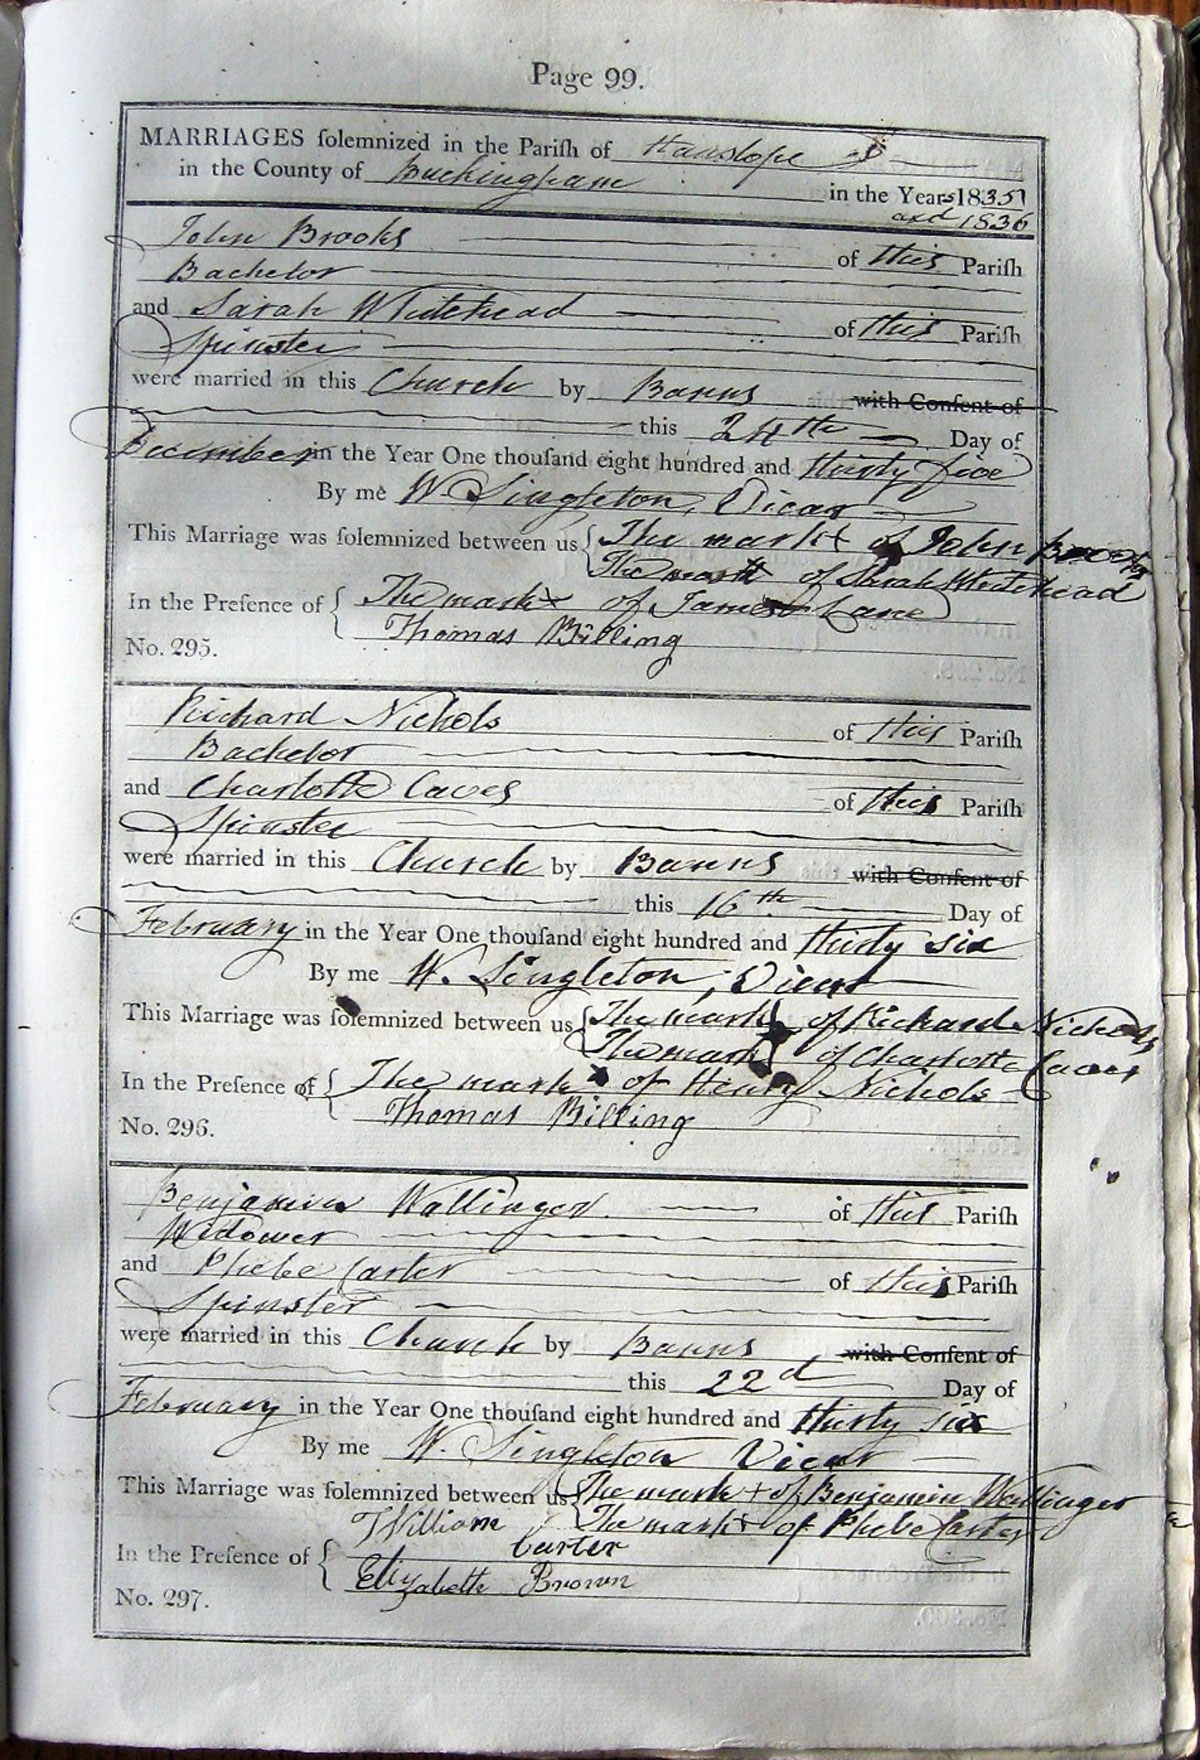 Page 99.
MARRIAGES ſolemnized in the Pariſh of Hanslope
in the County of Buckingham in the Years 1835
and 1836
John Brooks of this Pariſh
Bachelor
and Sarah Whitehead of this Pariſh
Spinster
were married in this Church by Banns with Conſent of
this 24th Day of
December in the Year One thouſand eight hundred and thirty five
By me W. Singleton, Vicar
This Marriage was ſolemnized between us { The mark + of John Brooks
The mark + of Sarah Whitehead
In the Preſence of { The mark x of James Lane
Thomas Billing
No. 295.
Richard Nichols of this Pariſh
Bachelor
and Charlotte Caves of this Pariſh
Spinster
were married in this Church by Banns with Conſent of
this 16th Day of
February in the Year One thouſand eight hundred and thirty six
By me W. Singleton, Vicar
This Marriage was ſolemnized between us { The mark of Richard Nichols
The mark of Charlotte Caves
In the Preſence of { The mark x of Henry Nichols
Thomas Billing
No. 296.
Benjamin Wallinger of this Pariſh
Widower
and Phebe Carter of this Pariſh
Spinster
were married in this Church by Banns with Conſent of
this 22d Day of
February in the Year One thouſand eight hundred and thirty six
By me W. Singleton Vicar
This Marriage was ſolemnized between us { The mark + of Benjamin Wallinger
The mark + of Phebe Carter
In the Preſence of { William Carter
Elizabeth Brown
No. 297.